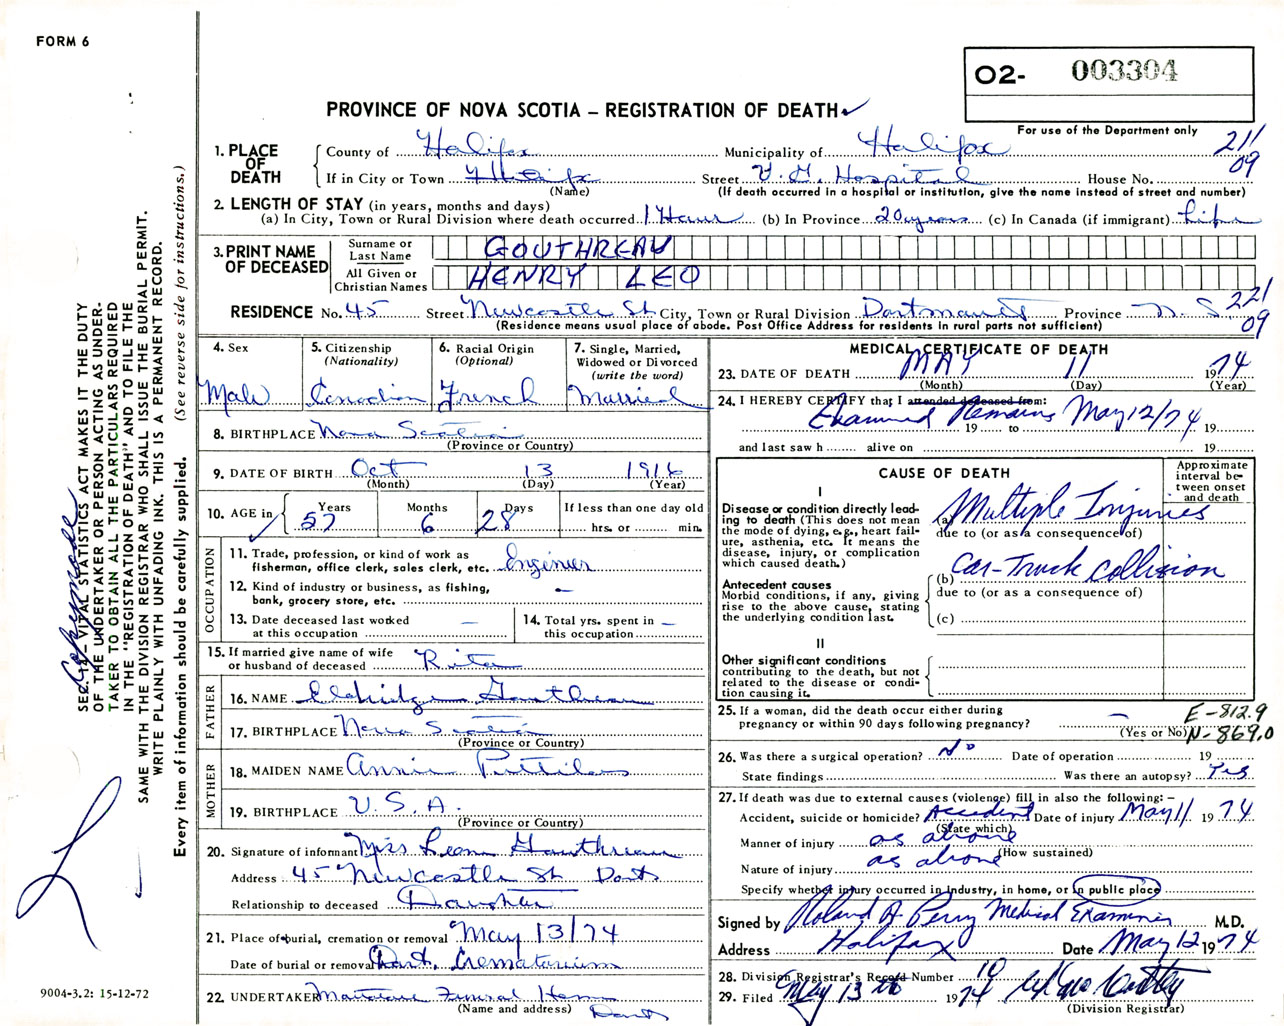 FORM 6
O2- 003304
PROVINCE OF NOVA SCOTIA – REGISTRATION OF DEATH
For use of the Department only
211
09
1. PLACE OF DEATH
County of Halifax Municipality of Halifax
If in City or Town Halifax Street V. G. Hospital House No.
(Name) (If death occurred in a hospital or institution, give the name instead of street and number)
2. LENGTH OF STAY (in years, months and days)
(a) In City, Town or Rural Division where death occurred 1 Hour (b) In Province 20 years (c) In Canada (if immigrant) Life
3. PRINT NAME OF DECEASED
Surname or Last Name GOUTHREAU
All Given or Christian Names HENRY LEO
RESIDENCE No. 45 Street Newcastle St City, Town or Rural Division Dartmouth Province N. S.
221
09
(Residence means usual place of abode. Post Office Address for residents in rural parts not sufficient)
4. Sex
Male
5. Citizenship
(Nationality)
Canadian
6. Racial Origin
(Optional)
French
7. Single, Married,
Widowed or Divorced
(write the word)
Married
8. BIRTHPLACE Nova Scotia
(Province or Country)
9. DATE OF BIRTH Oct 13 1916
(Month) (Day) (Year)
10. AGE in Years Months Days If less than one day old
57 6 28 hrs. or min.
OCCUPATION
11. Trade, profession, or kind of work as
fisherman, office clerk, sales clerk, etc. Engineer
12. Kind of industry or business, as fishing,
bank, grocery store, etc. –
13. Date deceased last worked
at this occupation –
14. Total yrs. spent in
this occupation –
15. If married give name of wife
or husband of deceased Rita
FATHER
16. NAME Eldridge Gouthreau
17. BIRTHPLACE Nova Scotia
(Province or Country)
MOTHER
18. MAIDEN NAME Annie
19. BIRTHPLACE U. S. A.
(Province or Country)
20. Signature of informant Miss Leona Gouthreau
Address 45 Newcastle St Dart
Relationship to deceased Daughter
21. Place of burial, cremation or removal May 13/74
Date of burial or removal Dart. Crematorium
22. UNDERTAKER Funeral Home
(Name and address) Dart
MEDICAL CERTIFICATE OF DEATH
23. DATE OF DEATH MAY 11 1974
(Month) (Day) (Year)
24. I HEREBY CERTIFY that I attended deceased from:
Examined Remains May 12/74
19 to 19
and last saw h alive on 19
CAUSE OF DEATH
Approximate
interval be-
tween onset
and death
I
Disease or condition directly lead-
ing to death (This does not mean
the mode of dying, e.g., heart fail-
ure, asthenia, etc. It means the
disease, injury, or complication
which caused death.)
(a) Multiple Injuries
due to (or as a consequence of)
Antecedent causes
Morbid conditions, if any, giving
rise to the above cause, stating
the underlying condition last.
(b) Car-Truck Collision
due to (or as a consequence of)
(c)
II
Other significant conditions
contributing to the death, but not
related to the disease or condi-
tion causing it.
25. If a woman, did the death occur either during
pregnancy or within 90 days following pregnancy? –
(Yes or No)
E-812.9
N-869.0
26. Was there a surgical operation? No Date of operation 19
State findings Was there an autopsy? Yes
27. If death was due to external causes (violence) fill in also the following: –
Accident, suicide or homicide? Accident Date of injury May 11 1974
(State which)
Manner of injury as above
(How sustained)
Nature of injury as above
Specify whether injury occurred in industry, in home, or in public place
Signed by Roland A Perry Medical Examiner M.D.
Address Halifax Date May 12 1974
28. Division Registrar's Record Number 10
29. Filed May 13th 1974
(Division Registrar)
SEC. 12 – VITAL STATISTICS ACT MAKES IT THE DUTY
OF THE UNDERTAKER OR PERSON ACTING AS UNDER-
TAKER TO OBTAIN ALL THE PARTICULARS REQUIRED
IN THE "REGISTRATION OF DEATH" AND TO FILE THE
SAME WITH THE DIVISION REGISTRAR WHO SHALL ISSUE THE BURIAL PERMIT.
WRITE PLAINLY WITH UNFADING INK. THIS IS A PERMANENT RECORD.
Every item of information should be carefully supplied. (See reverse side for instructions.)
9004-3.2: 15-12-72